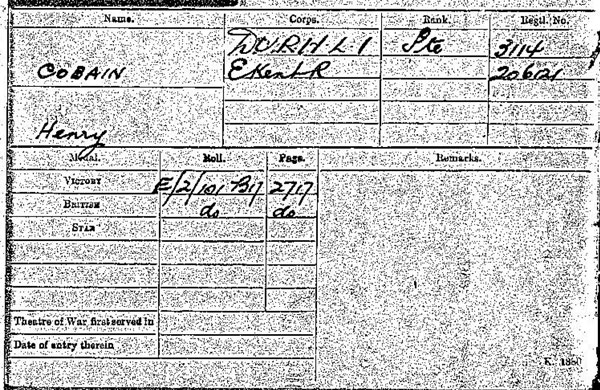 Name. Corps. Rank. Regtl. No.
DURH. L. I Pte 3114
COBAIN E Kent R 206121
Henry
Medal. Roll. Page. Remarks.
VICTORY E/2/101 B17 2717
BRITISH do do
STAR
Theatre of War first served in
Date of entry therein
K. 1380